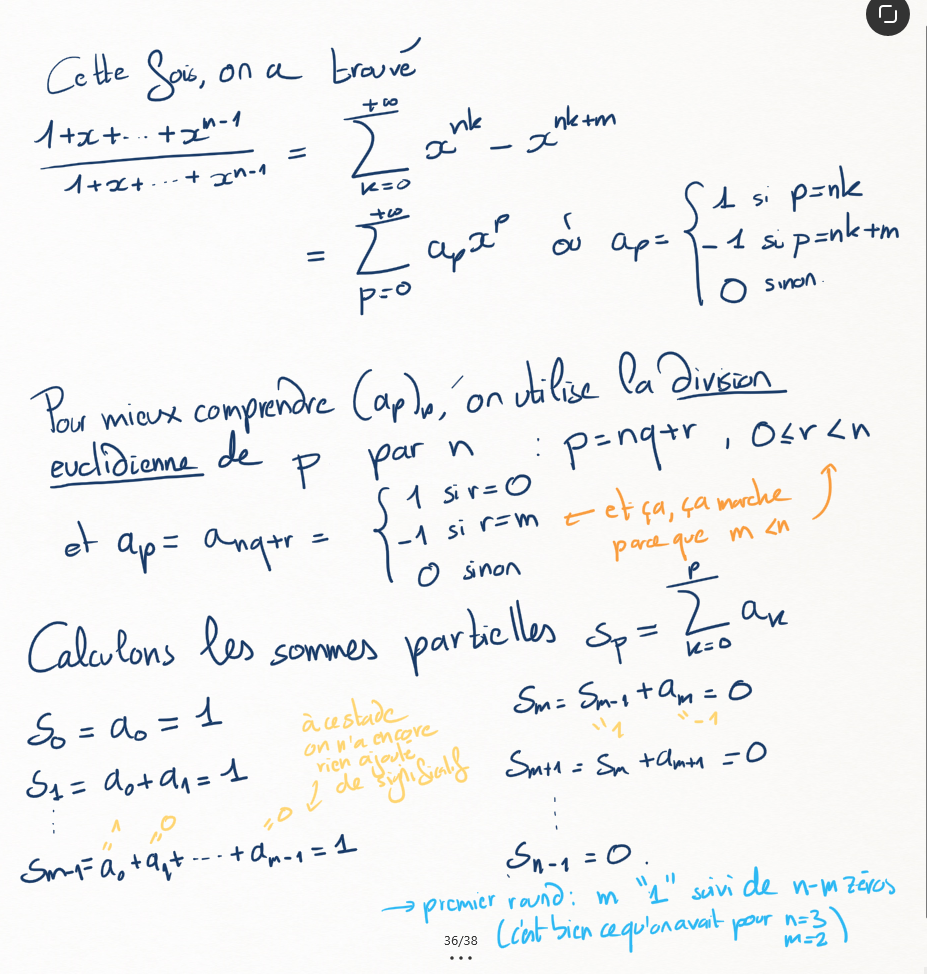 Cette fois, on a trouvé
(1+x+...+x^{n-1})/(1+x+...+x^{n-1}) = ∑_{k=0}^{+∞} x^{nk} - x^{nk+m}
= ∑_{p=0}^{+∞} a_p x^p où a_p = { 1 si p=nk
-1 si p=nk+m
0 sinon.
Pour mieux comprendre (a_p)_p, on utilise la division
euclidienne de p par n : p=nq+r , 0≤r<n
et a_p = a_{nq+r} = { 1 si r=0
-1 si r=m
0 sinon
← et ça, ça marche
parce que m<n
Calculons les sommes partielles S_p = ∑_{k=0}^{p} a_k
S_0 = a_0 = 1
S_1 = a_0+a_1 = 1
⋮
à ce stade
on n'a encore
rien ajouté
de significatif
"1 "0 "0
S_{m-1} = a_0+a_1+...+a_{m-1} = 1
S_m = S_{m-1} + a_m = 0
"1 "-1
S_{m+1} = S_m + a_{m+1} = 0
⋮
S_{n-1} = 0.
→ premier round: m "1" suivi de n-m zéros
(c'est bien ce qu'on avait pour n=3
m=2)
36/38